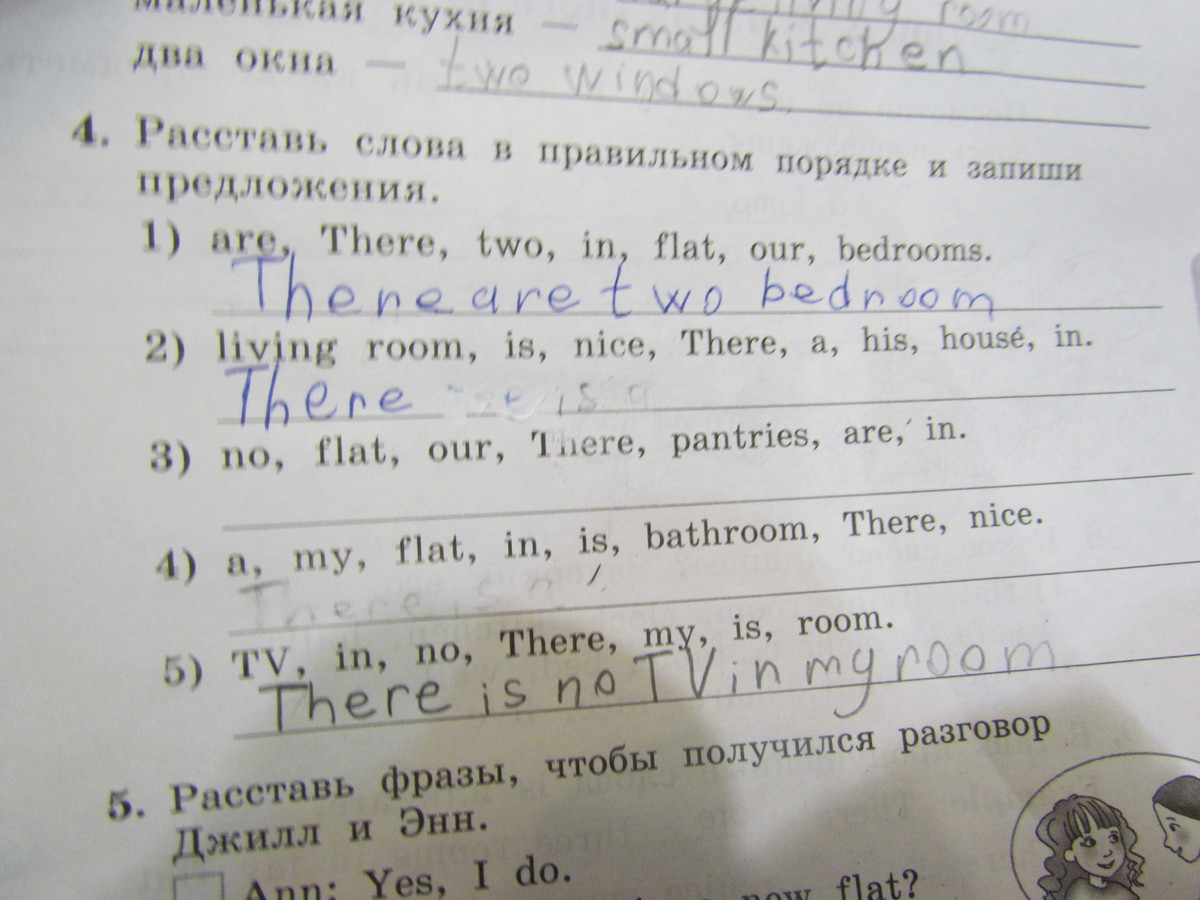 маленькая кухня — small kitchen
room
два окна — two windows.
4. Расставь слова в правильном порядке и запиши
предложения.
1) are, There, two, in, flat, our, bedrooms.
There are two bedroom
2) living room, is, nice, There, a, his, house, in.
There is a
3) no, flat, our, There, pantries, are, in.
4) a, my, flat, in, is, bathroom, There, nice.
There is
5) TV, in, no, There, my, is, room.
There is no TV in my room
5. Расставь фразы, чтобы получился разговор
Джилл и Энн.
Ann: Yes, I do.
flat?